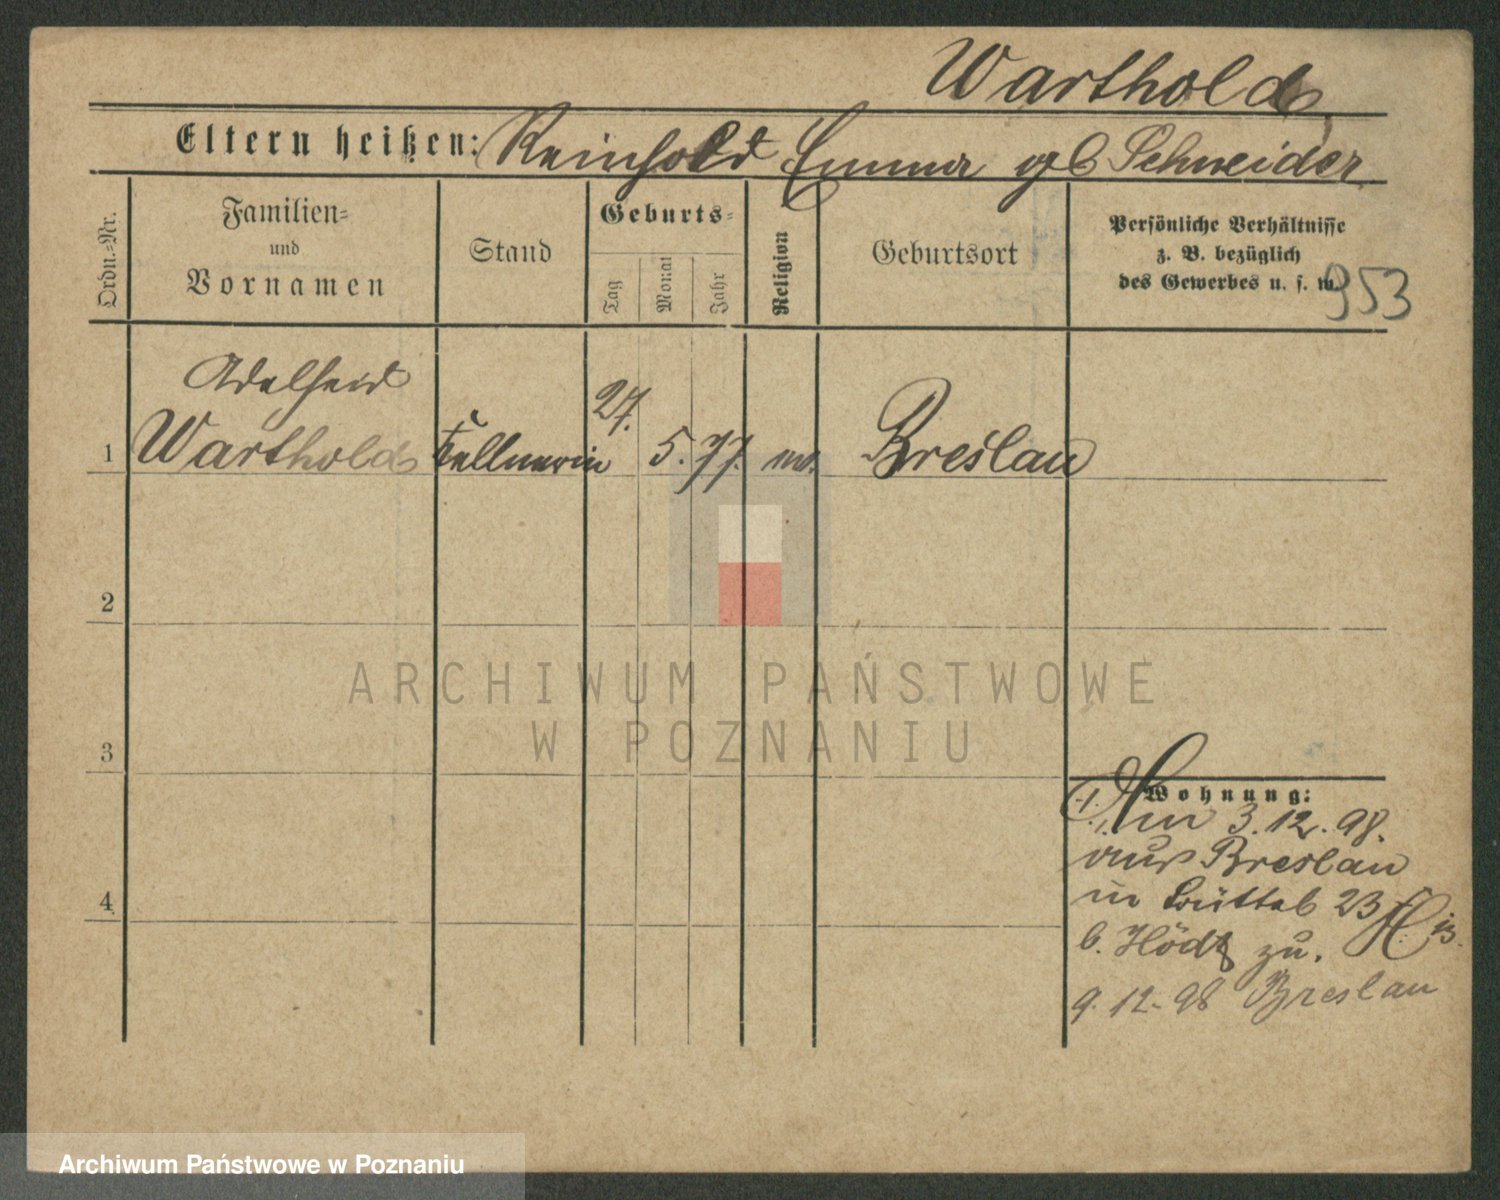 Warthold
Eltern heißen: Reinhold Emma gb Schneider
Ordn.-Nr.
Familien-
und
Vornamen
Stand
Geburts-
Tag
Monat
Jahr
Religion
Geburtsort
Persönliche Verhältnisse
z. B. bezüglich
des Gewerbes u. s. w.
953
1
Adelheid
Warthold
Kellnerin
27.
5. 77.
Breslau
2
ARCHIWUM PAŃSTWOWE
W POZNANIU
3
Wohnung:
Am 3.12.98.
aus Breslau
in 23
b. zu.
9.12.98 Breslau
4
Archiwum Państwowe w Poznaniu